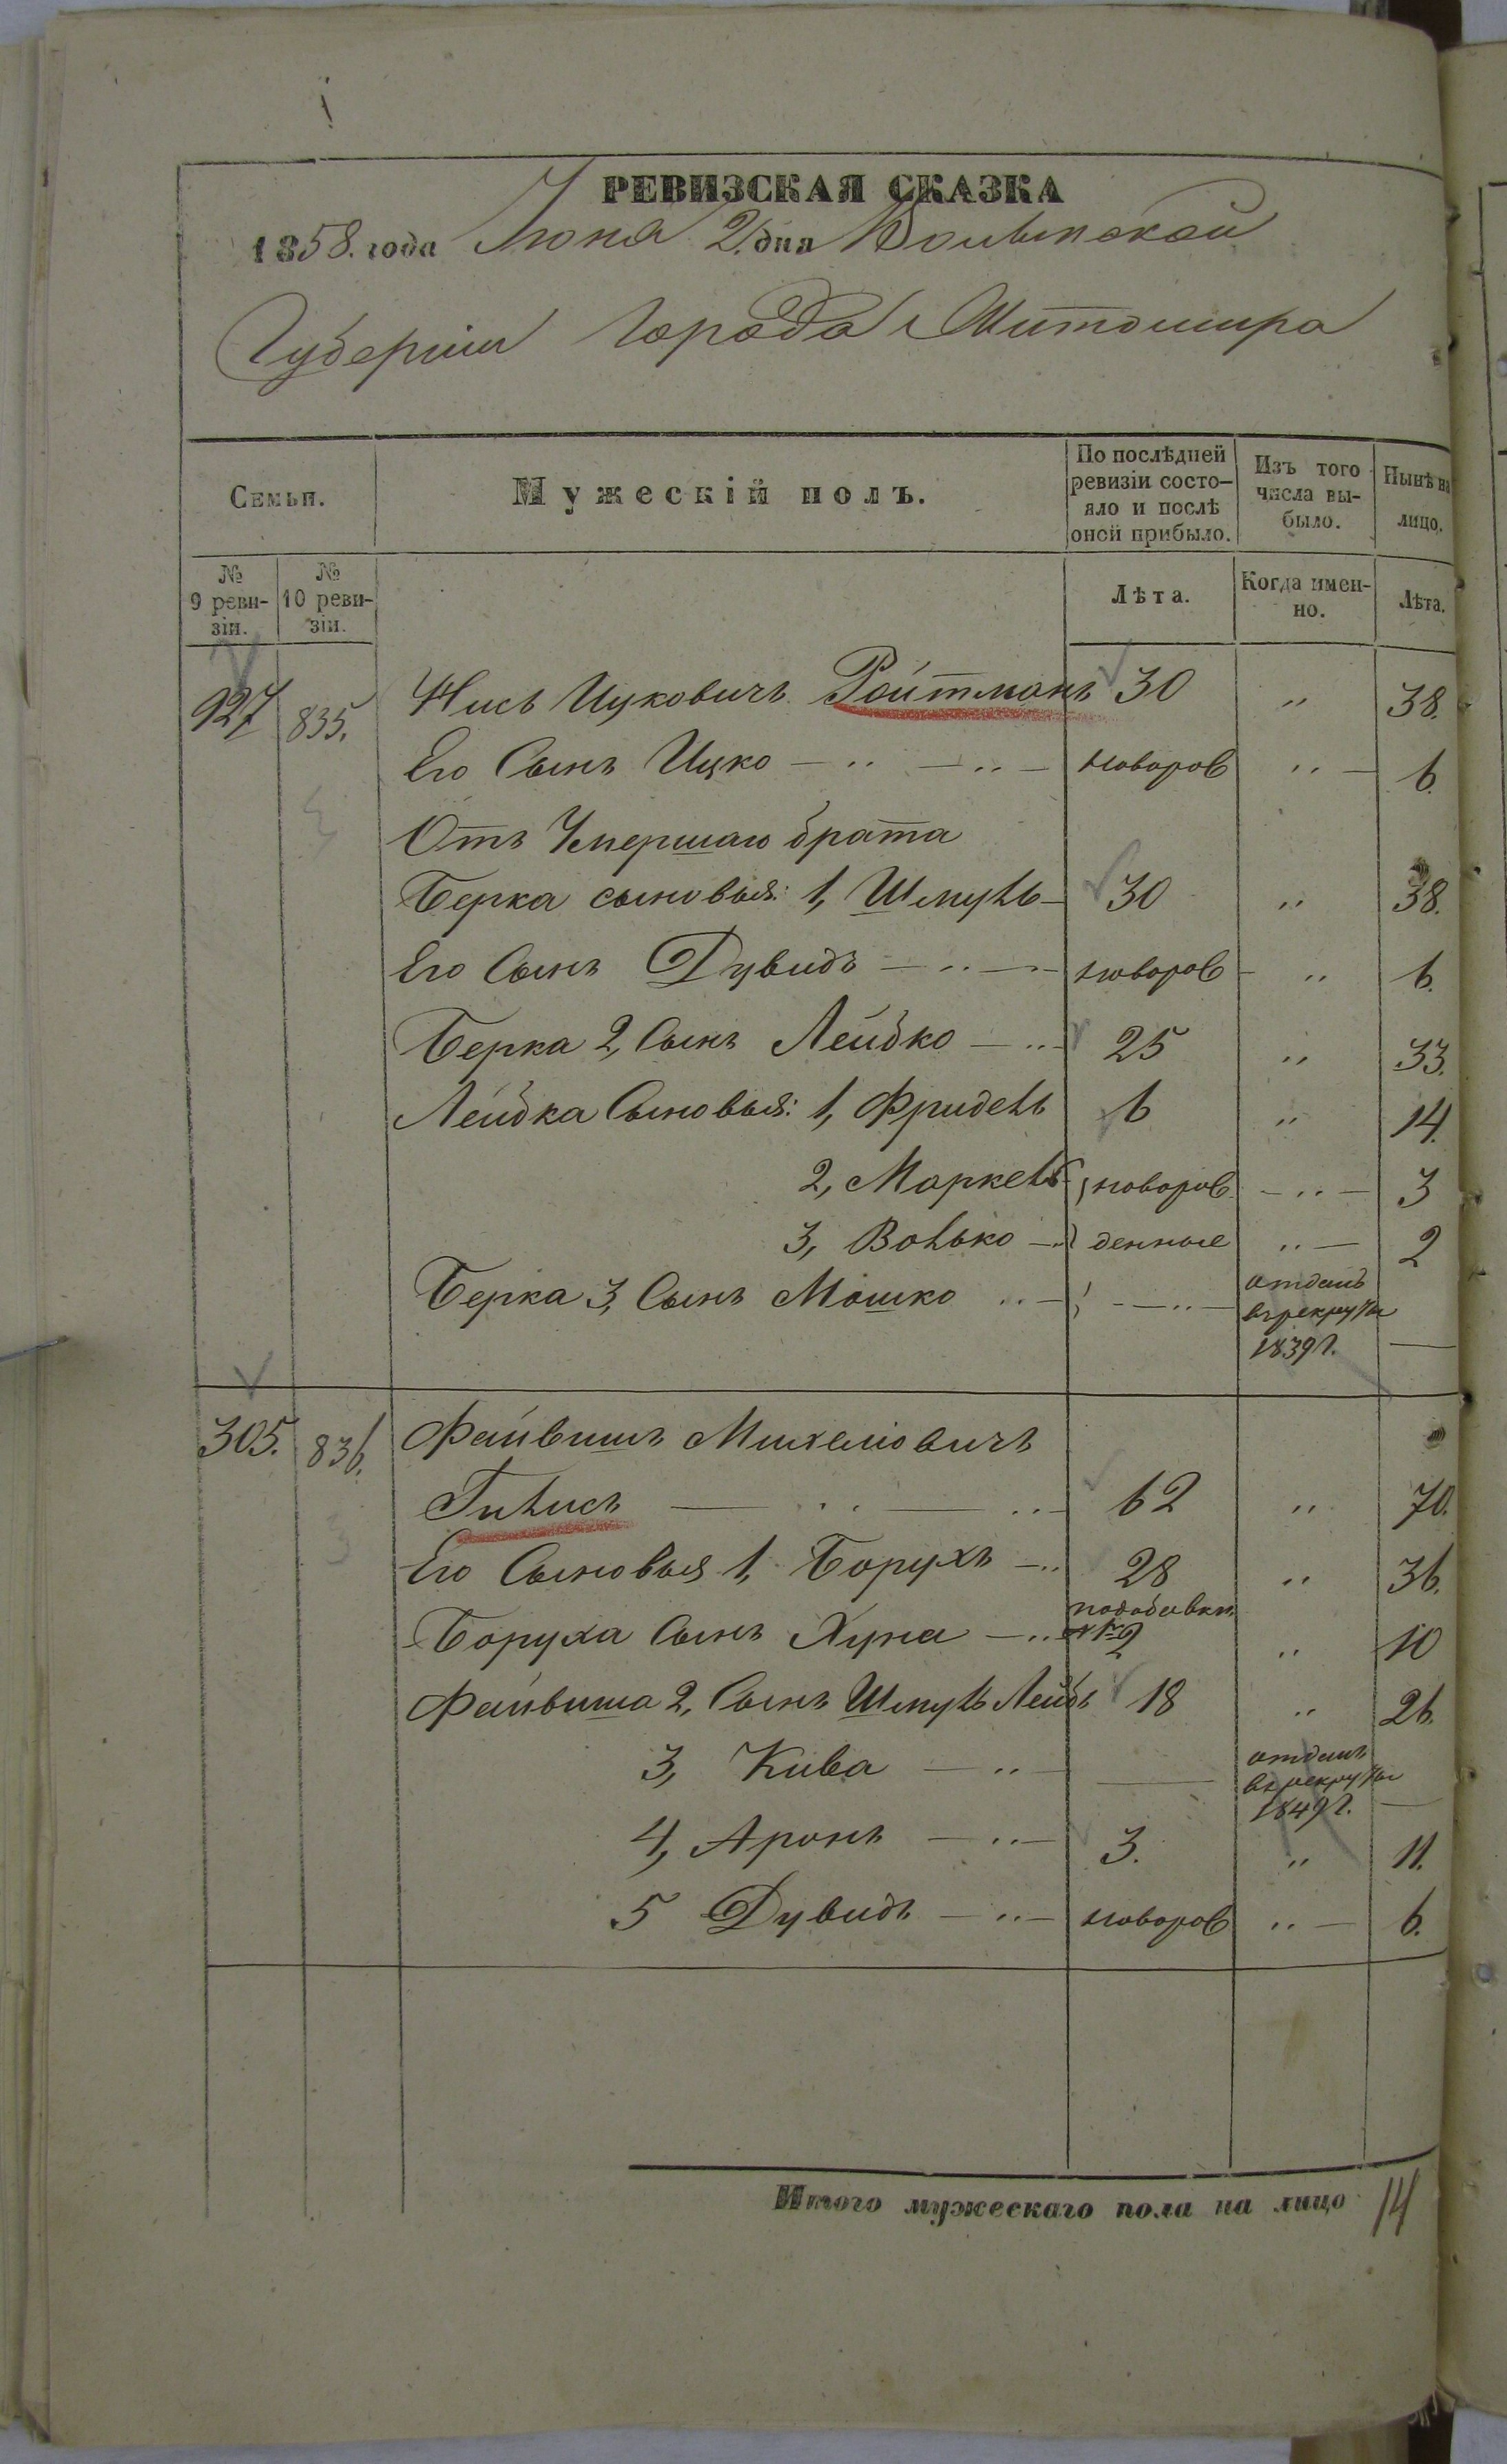 РЕВИЗСКАЯ СКАЗКА
1858. года Іюня 2. дня Волынской
Губерніи Города Житомира
Семьи.
Мужескій полъ.
По послѣдней ревизіи состо-яло и послѣ оной прибыло.
Изъ того числа вы-было.
Нынѣ на лицо.
№ 9 реви-зіи.
№ 10 реви-зіи.
Лѣта.
Когда имен-но.
Лѣта.
927 835. Нись Ицковичъ Ройтманъ 30 " 38.
Его Сынъ Ицко — " — " — новорож " — 6.
Отъ Умершаго брата
Берка сыновья: 1, Шмуль — 30 " 38.
Его Сынъ Дувидъ — " — новорож — " 6.
Берка 2, Сынъ Лейбко — " — 25 " 33.
Лейбка Сыновья: 1, Фридель 6 " 14.
2, Маркель новорож — " — 3
3, Волько — денные " — 2
Берка 3, Сынъ Мошко " — — " — отданъ
въ рекруты
1839 г. —
305. 836. Файвишъ Михелiовичъ
Гилисъ — " — " — 62 " 70.
Его Сыновья 1, Борухъ — " 28 " 36.
Боруха Сынъ Хуна — " 2 " 10
Файвиша 2, Сынъ Шмуль Лейбъ 18 " 26.
3, Кива — " — — отданъ
въ рекруты
1849 г. —
4, Аронъ — " — 3. " 11.
5 Дувидъ — " — новорож " — 6.
Итого мужескаго пола на лицо 14